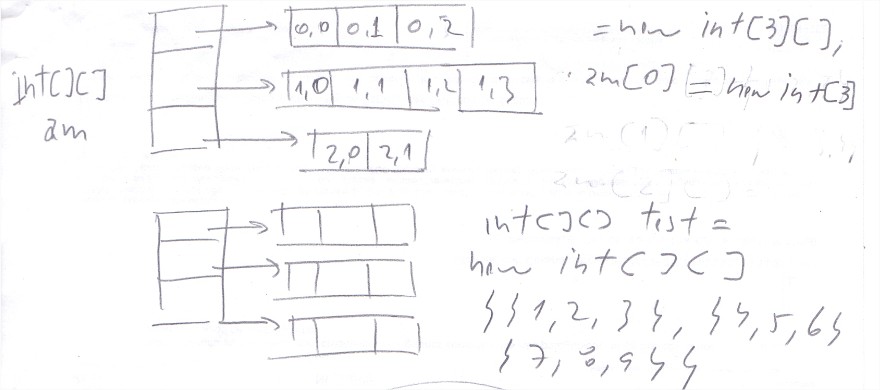 int[][]
am
0,0 0,1 0,2
1,0 1,1 1,2 1,3
2,0 2,1
= new int[3][];
am[0] = new int[3]
int[][] test =
new int[][]
{{1,2,3}, {4,5,6}
{7,8,9}}